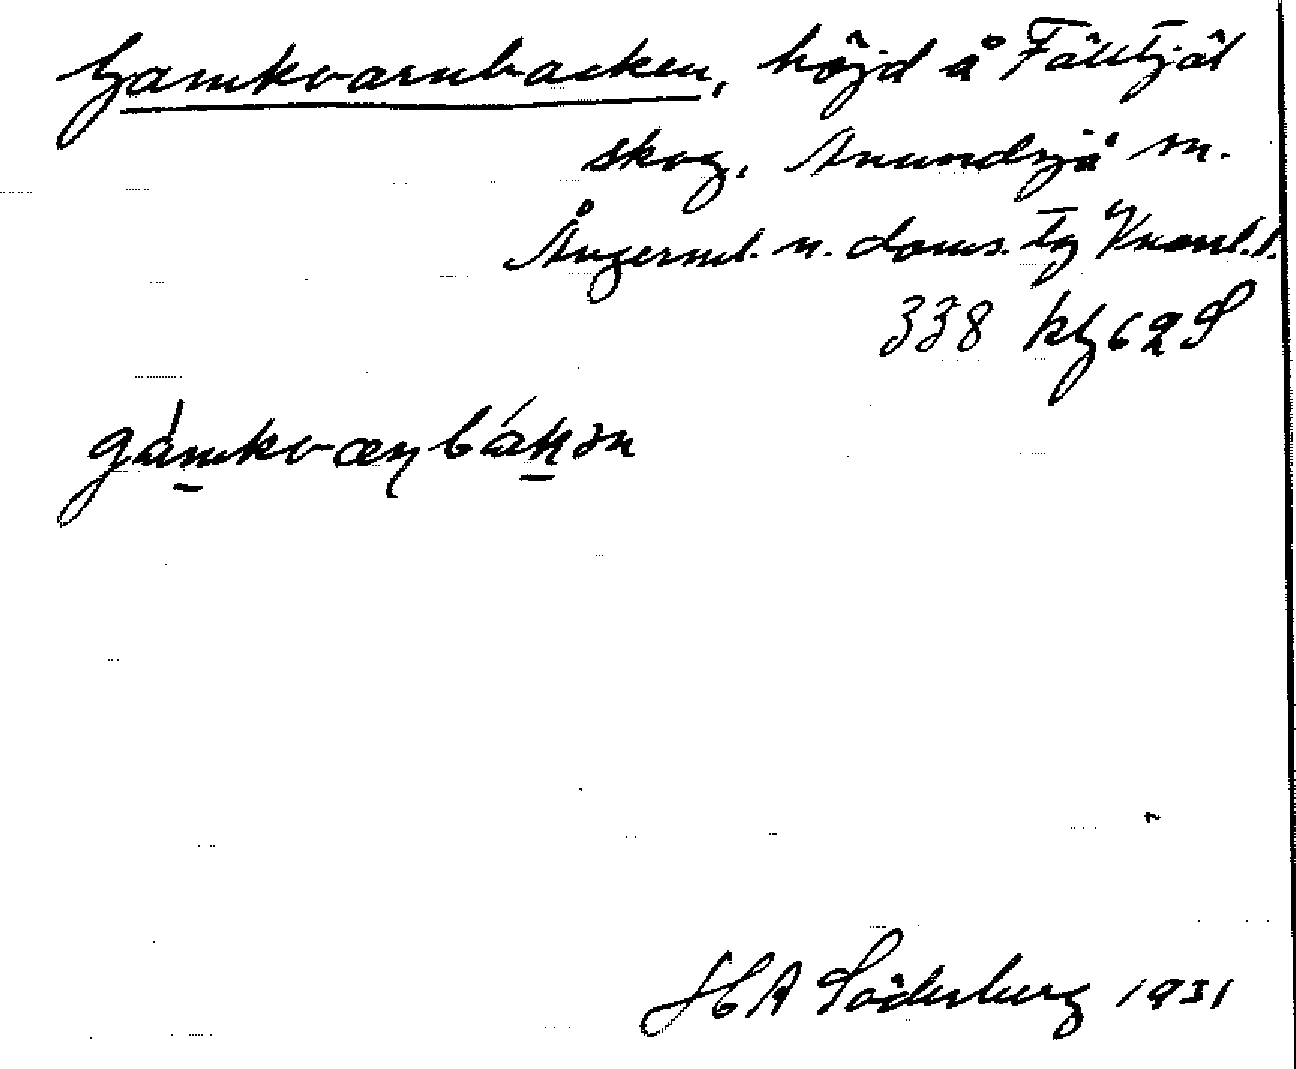 Gamkvarnbacken, höjd å Fälltjäl
skog, Anundsjö sn.
Ångerml. n. doms. tg Västl. l.
338 kbl 62 S
gámkvæṇbákən
HA Söderberg 1931